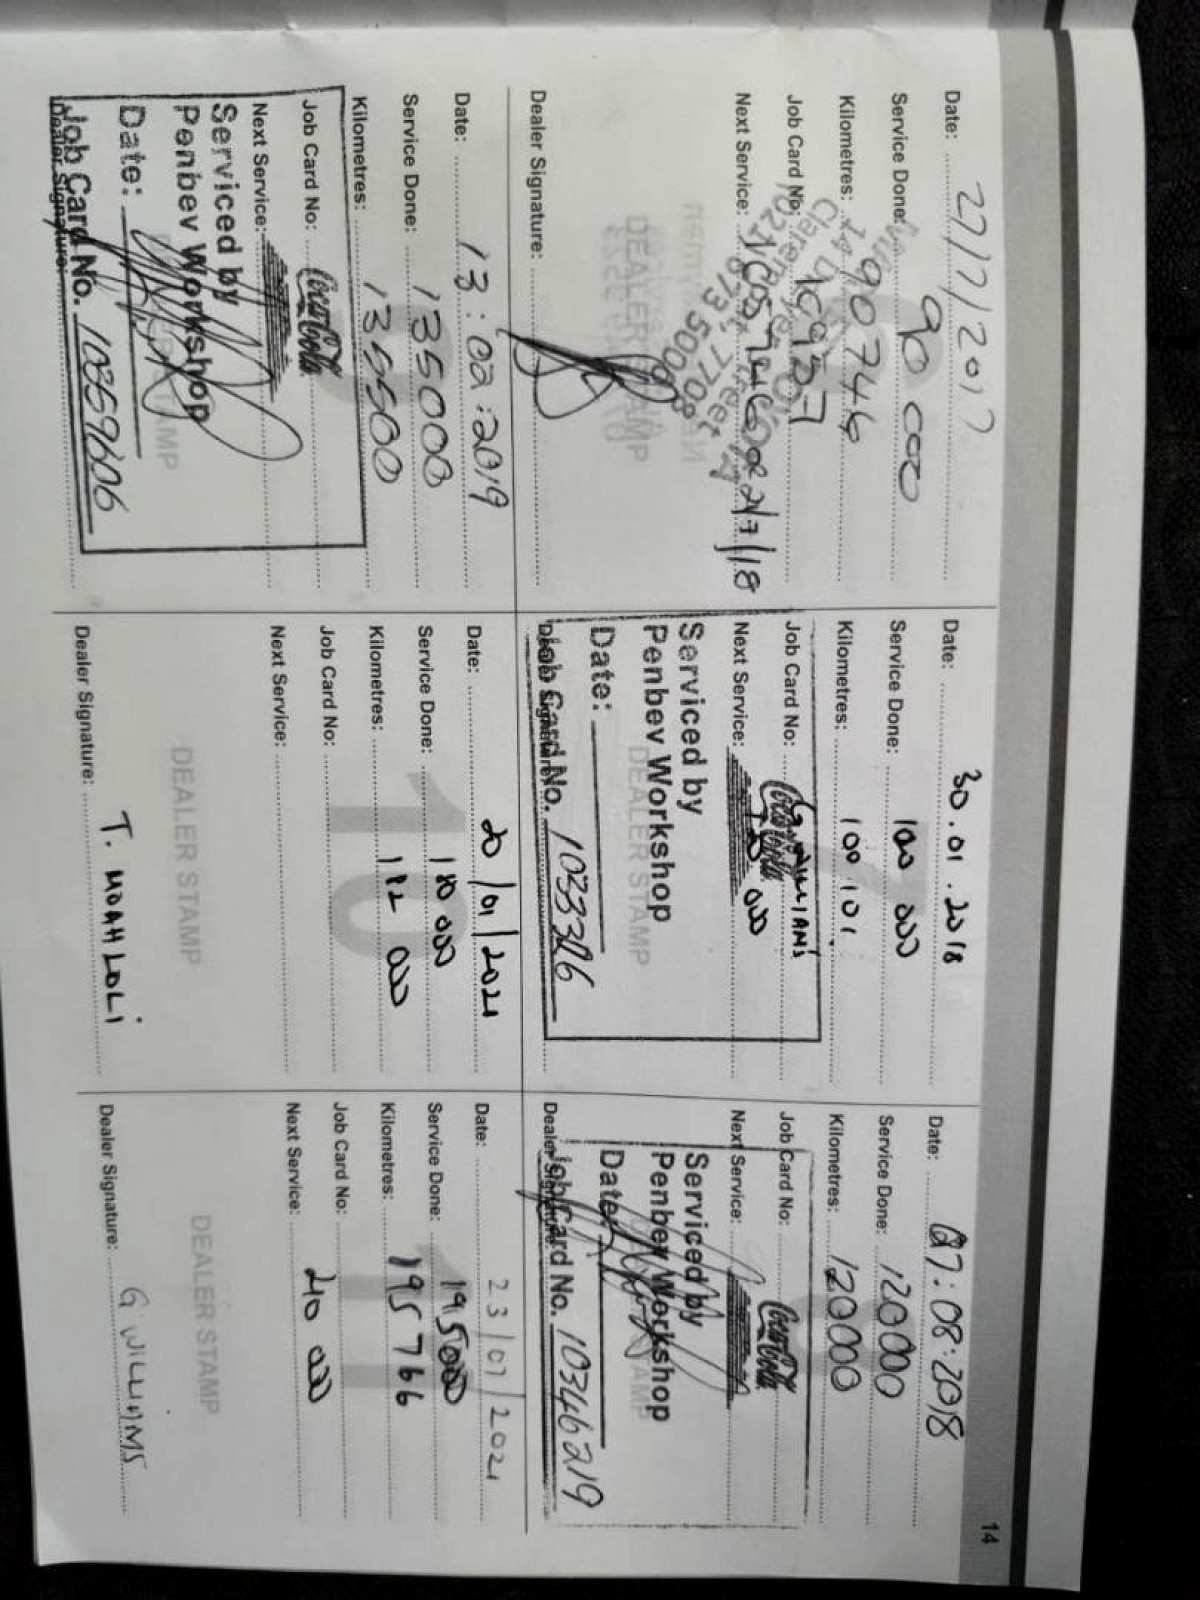 14
Date: 27/7/2017
Service Done: 90 000
Kilometres: 90746
Job Card No:
Next Service:
DEALER STAMP
Dealer Signature:
Date: 30.01.2018
Service Done: 100 000
Kilometres: 100 101
Job Card No:
Coca-Cola
Next Service:
Serviced by
Penbev Workshop
DEALER STAMP
Date:
Job Card No.
Dealer Signature:
Date: 07:08:2018
Service Done: 120000
Kilometres: 120000
Job Card No:
Coca-Cola
Next Service:
Serviced by
Penbev Workshop
Date:
Job Card No. 10346219
Dealer Signature:
Date: 13:02:2019
Service Done: 135000
Kilometres: 135500
Job Card No:
Coca-Cola
Next Service:
Serviced by
Penbev Workshop
Date:
Job Card No. 10359606
Dealer Signature:
10
Date: 20/01/2021
Service Done: 180 000
Kilometres: 182 000
Job Card No:
Next Service:
DEALER STAMP
Dealer Signature: T. MOAHLOLI
11
Date: 23/07/2021
Service Done: 195000
Kilometres: 195766
Job Card No:
Next Service: 210 000
DEALER STAMP
Dealer Signature: G WILLIAMS